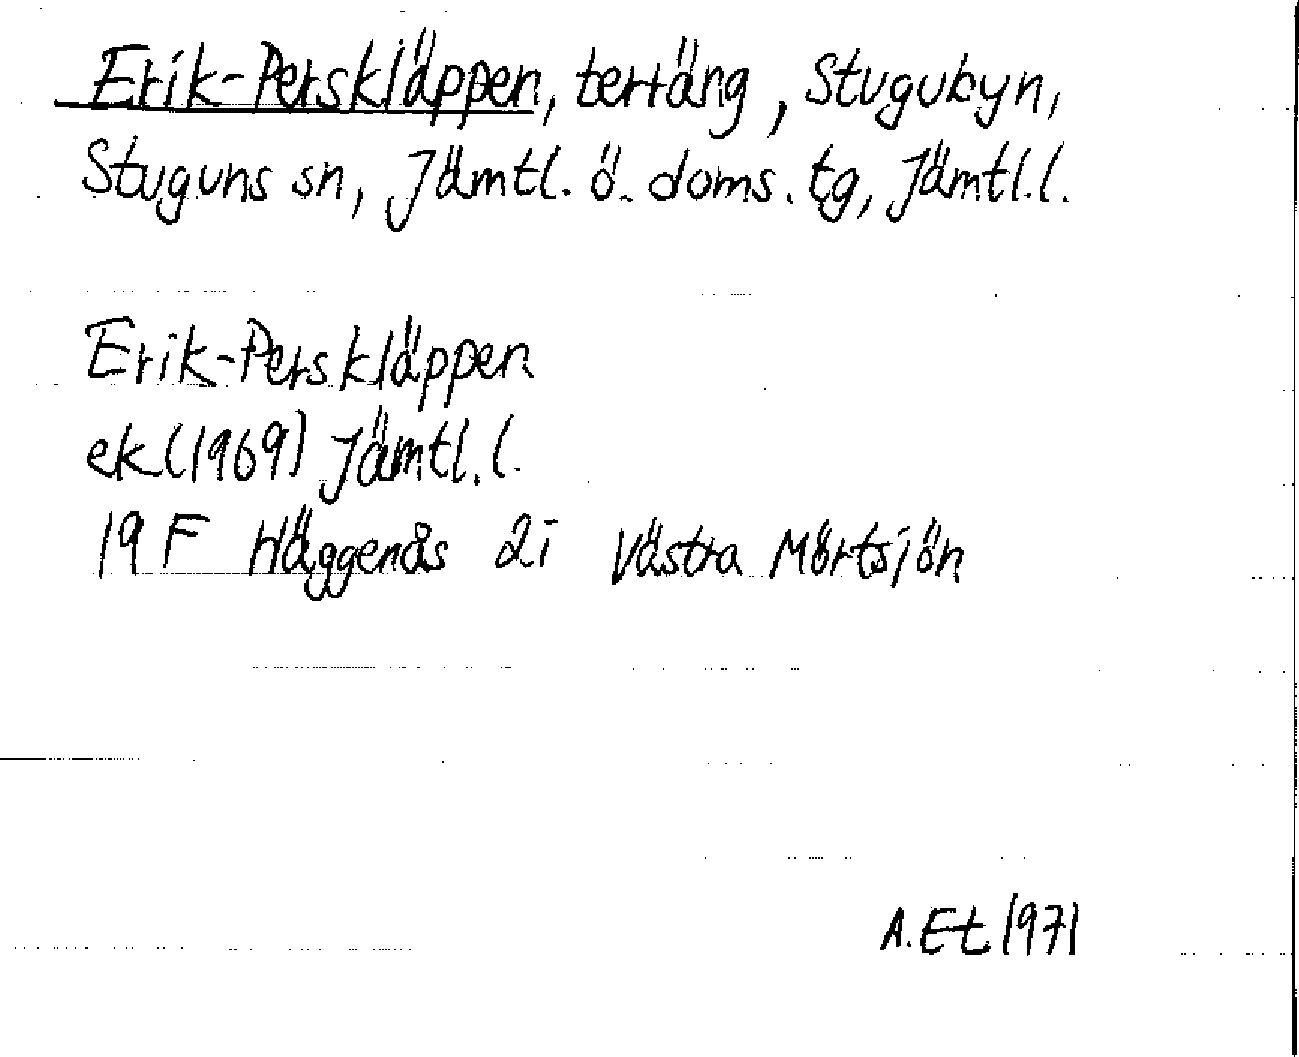 Erik-Perskläppen, terräng, Stugubyn,
Stuguns sn, Jämtl. ö. doms. tg, Jämtl.l.
Erik-Perskläppen
ek (1969) Jämtl.l.
19 F Häggenås 2i Västra Mörtsjön
A. Et 1971